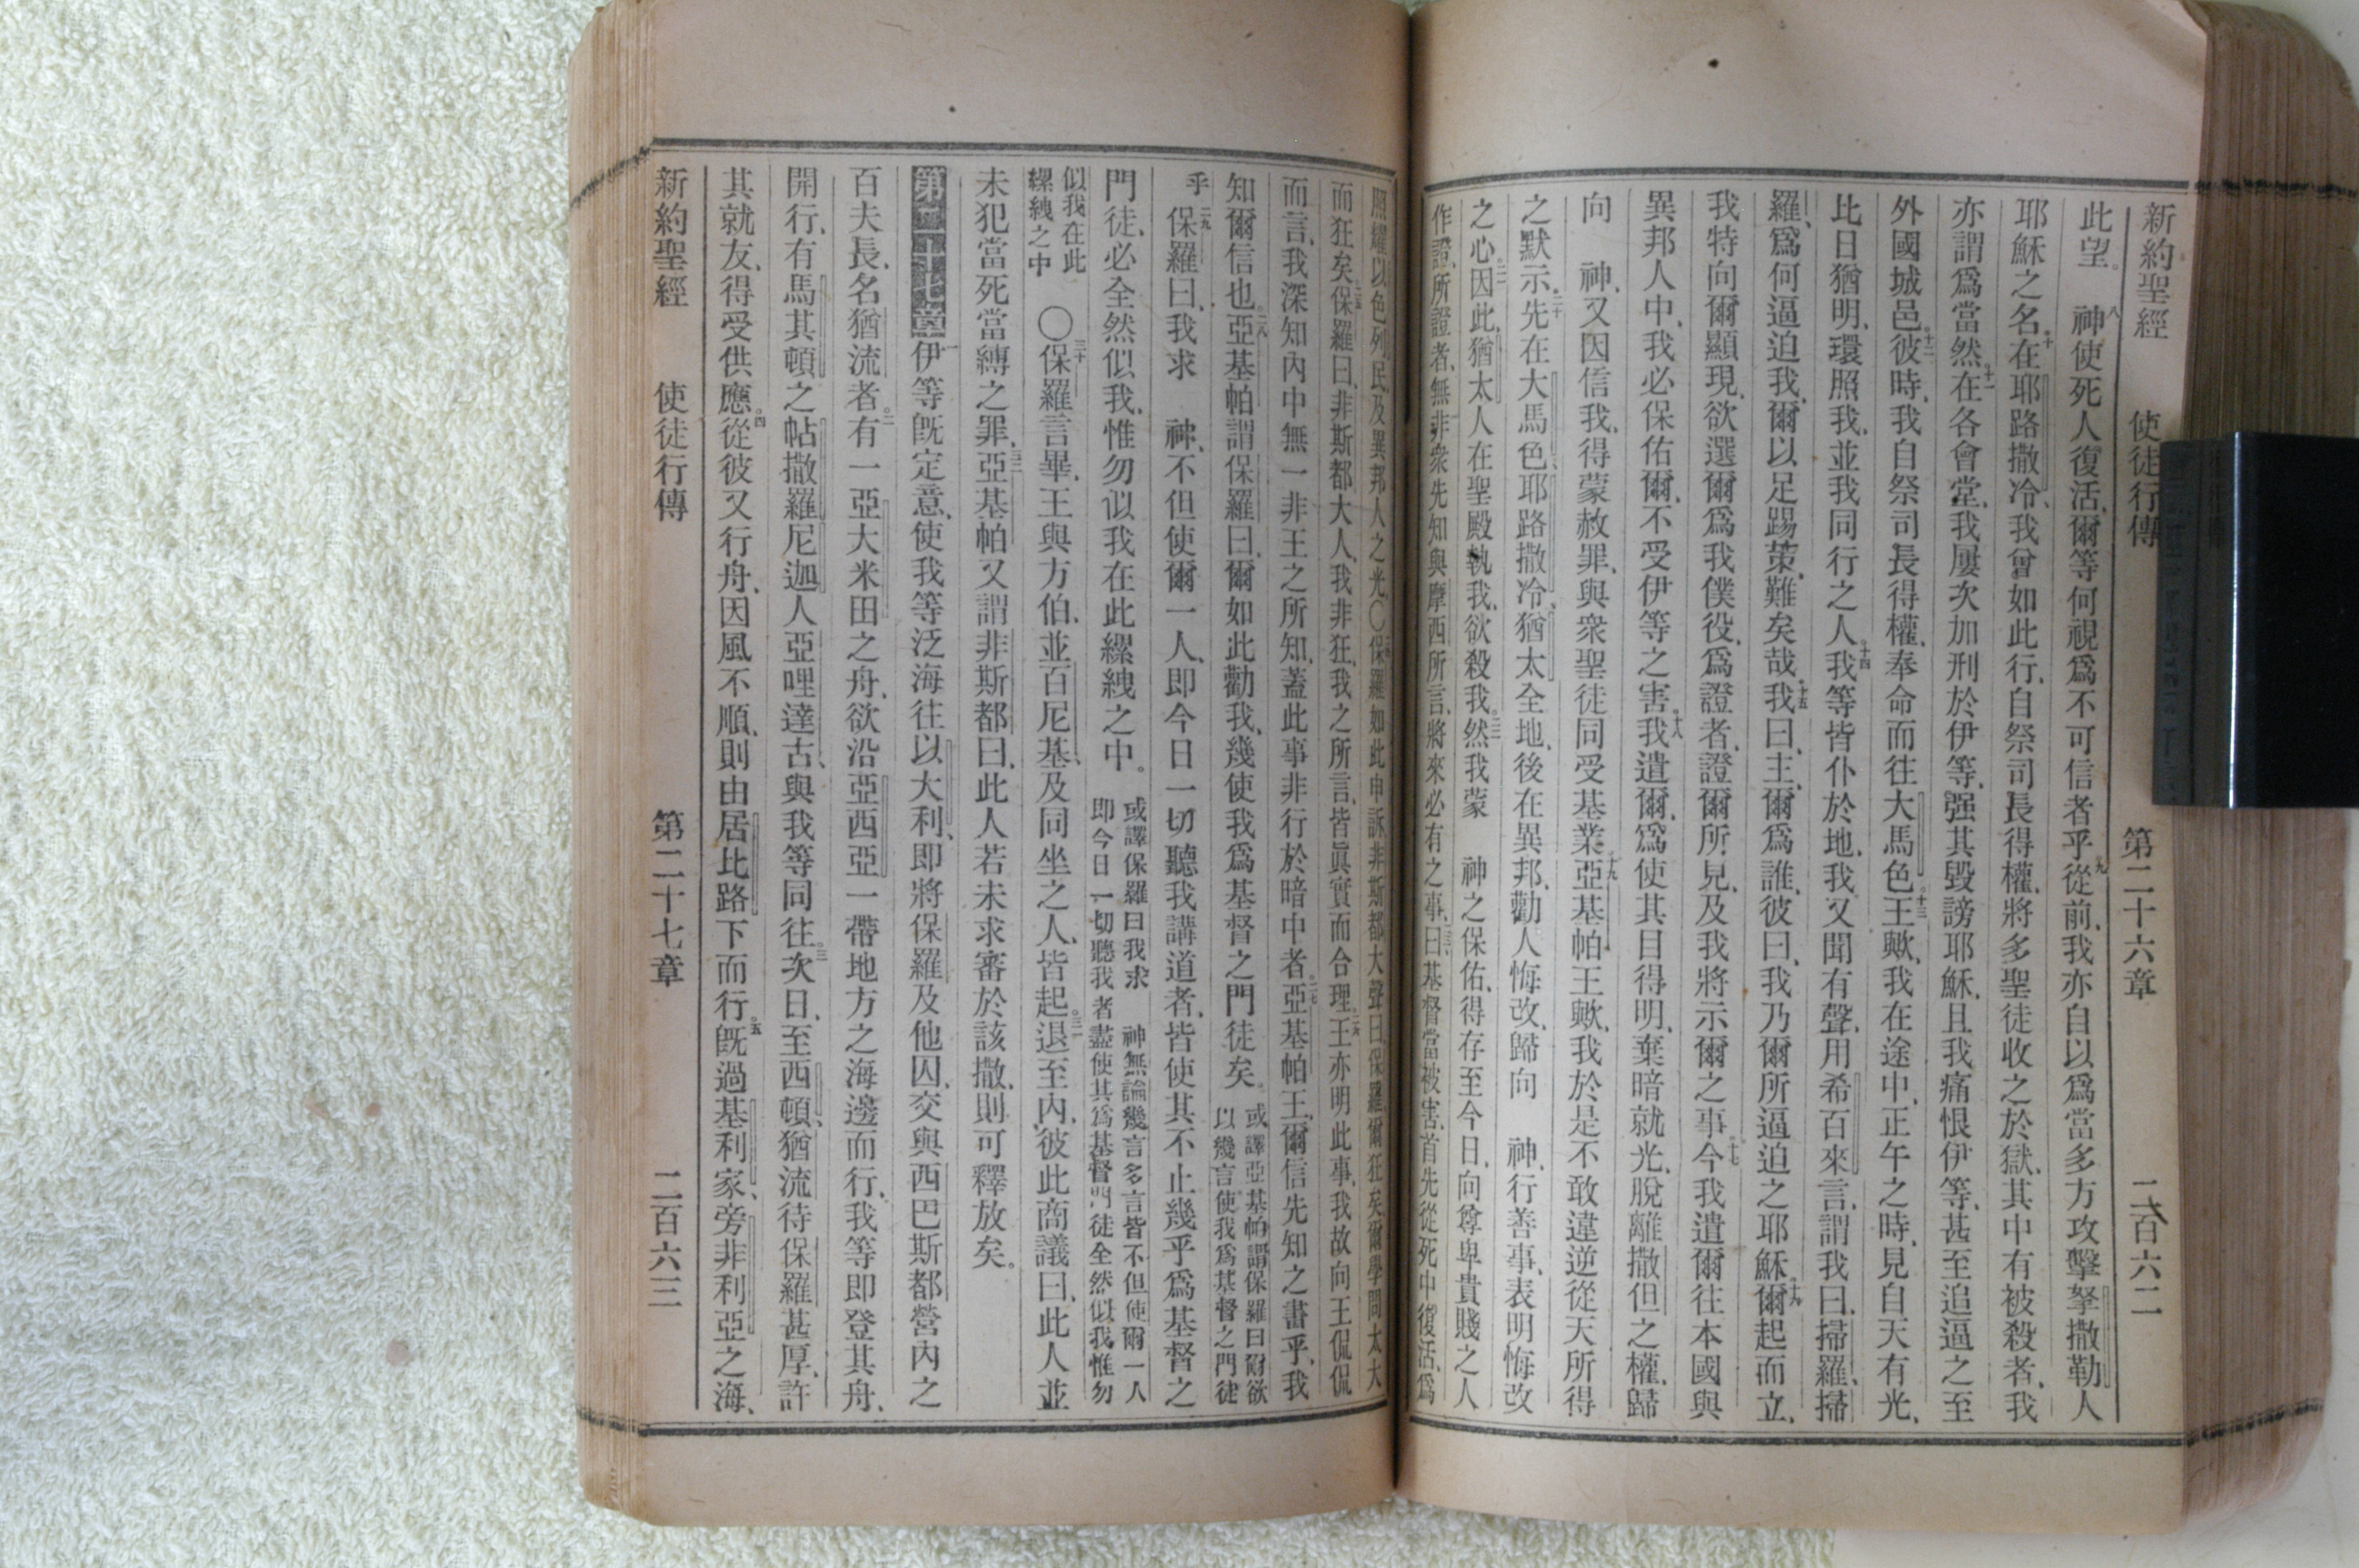 新約聖經 使徒行傳 第二十六章 二百六二
此望。八 神使死人復活、爾等何視爲不可信者乎、九從前、我亦自以爲當多方攻擊拏撒勒人
耶穌之名、十在耶路撒冷、我曾如此行、自祭司長得權、將多聖徒收之於獄、其中有被殺者、我
亦謂爲當然、十一在各會堂、我屢次加刑於伊等、强其毀謗耶穌、且我痛恨伊等、甚至追逼之至
外國城邑。十二彼時、我自祭司長得權、奉命而往大馬色、十三王歟、我在途中、正午之時、見自天有光、
比日猶明、環照我、並我同行之人、十四我等皆仆於地、我又聞有聲、用希百來言、謂我曰、掃羅、掃
羅、爲何逼迫我、爾以足踢策、難矣哉、十五我曰、主、爾爲誰、彼曰、我乃爾所逼迫之耶穌、十六爾起而立、
我特向爾顯現、欲選爾爲我僕役、爲證者、證爾所見、及我將示爾之事、十七今我遣爾往本國與
異邦人中、我必保佑爾、不受伊等之害、十八我遣爾、爲使其目得明、棄暗就光、脫離撒但之權、歸
向 神、又因信我、得蒙赦罪、與衆聖徒同受基業、十九亞基帕王歟、我於是不敢違逆從天所得
之默示、二十先在大馬色、耶路撒冷、猶太全地、後在異邦、勸人悔改、歸向 神、行善事、表明悔改
之心、二一因此、猶太人在聖殿執我、欲殺我、二二然我蒙 神之保佑、得存至今日、向尊卑貴賤之人
作證、所證者、無非衆先知與摩西所言、將來必有之事、二三曰、基督當被害、首先從死中復活、爲
照耀以色列民、及異邦人之光、〇二四保羅如此申訴、非斯都大聲曰、保羅、爾狂矣、爾學問太大
而狂矣、二五保羅曰、非斯都大人、我非狂、我之所言、皆眞實而合理、二六王亦明此事、我故向王侃侃
而言、我深知內中無一非王之所知、蓋此事非行於暗中者。二七亞基帕王、爾信先知之書乎、我
知爾信也、二八亞基帕謂保羅曰、爾如此勸我、幾使我爲基督之門徒矣。或譯亞基帕謂保羅曰爾欲以幾言使我爲基督之門徒
乎 二九保羅曰、我求 神、不但使爾一人、即今日一切聽我講道者、皆使其不止幾乎爲基督之
門徒、必全然似我、惟勿似我在此縲絏之中。或譯保羅曰我求 神無論幾言多言皆不但使爾一人即今日一切聽我者盡使其爲基督門徒全然似我惟勿
似我在此縲絏之中 〇三十保羅言畢、王與方伯、並百尼基、及同坐之人、皆起。三一退至內、彼此商議曰、此人並
未犯當死當縛之罪、三二亞基帕又謂非斯都曰、此人若未求審於該撒、則可釋放矣。
第二十七章 一伊等旣定意、使我等泛海往以大利、即將保羅及他囚、交與西巴斯都營內之
百夫長、名猶流者。二有一亞大米田之舟、欲沿亞西亞一帶地方之海邊而行、我等即登其舟、
開行、有馬其頓之帖撒羅尼迦人亞哩達古、與我等同往。三次日、至西頓、猶流待保羅甚厚、許
其就友、得受供應。四從彼又行舟、因風不順、則由居比路下而行。五旣過基利家、旁非利亞之海、
新約聖經 使徒行傳 第二十七章 二百六三